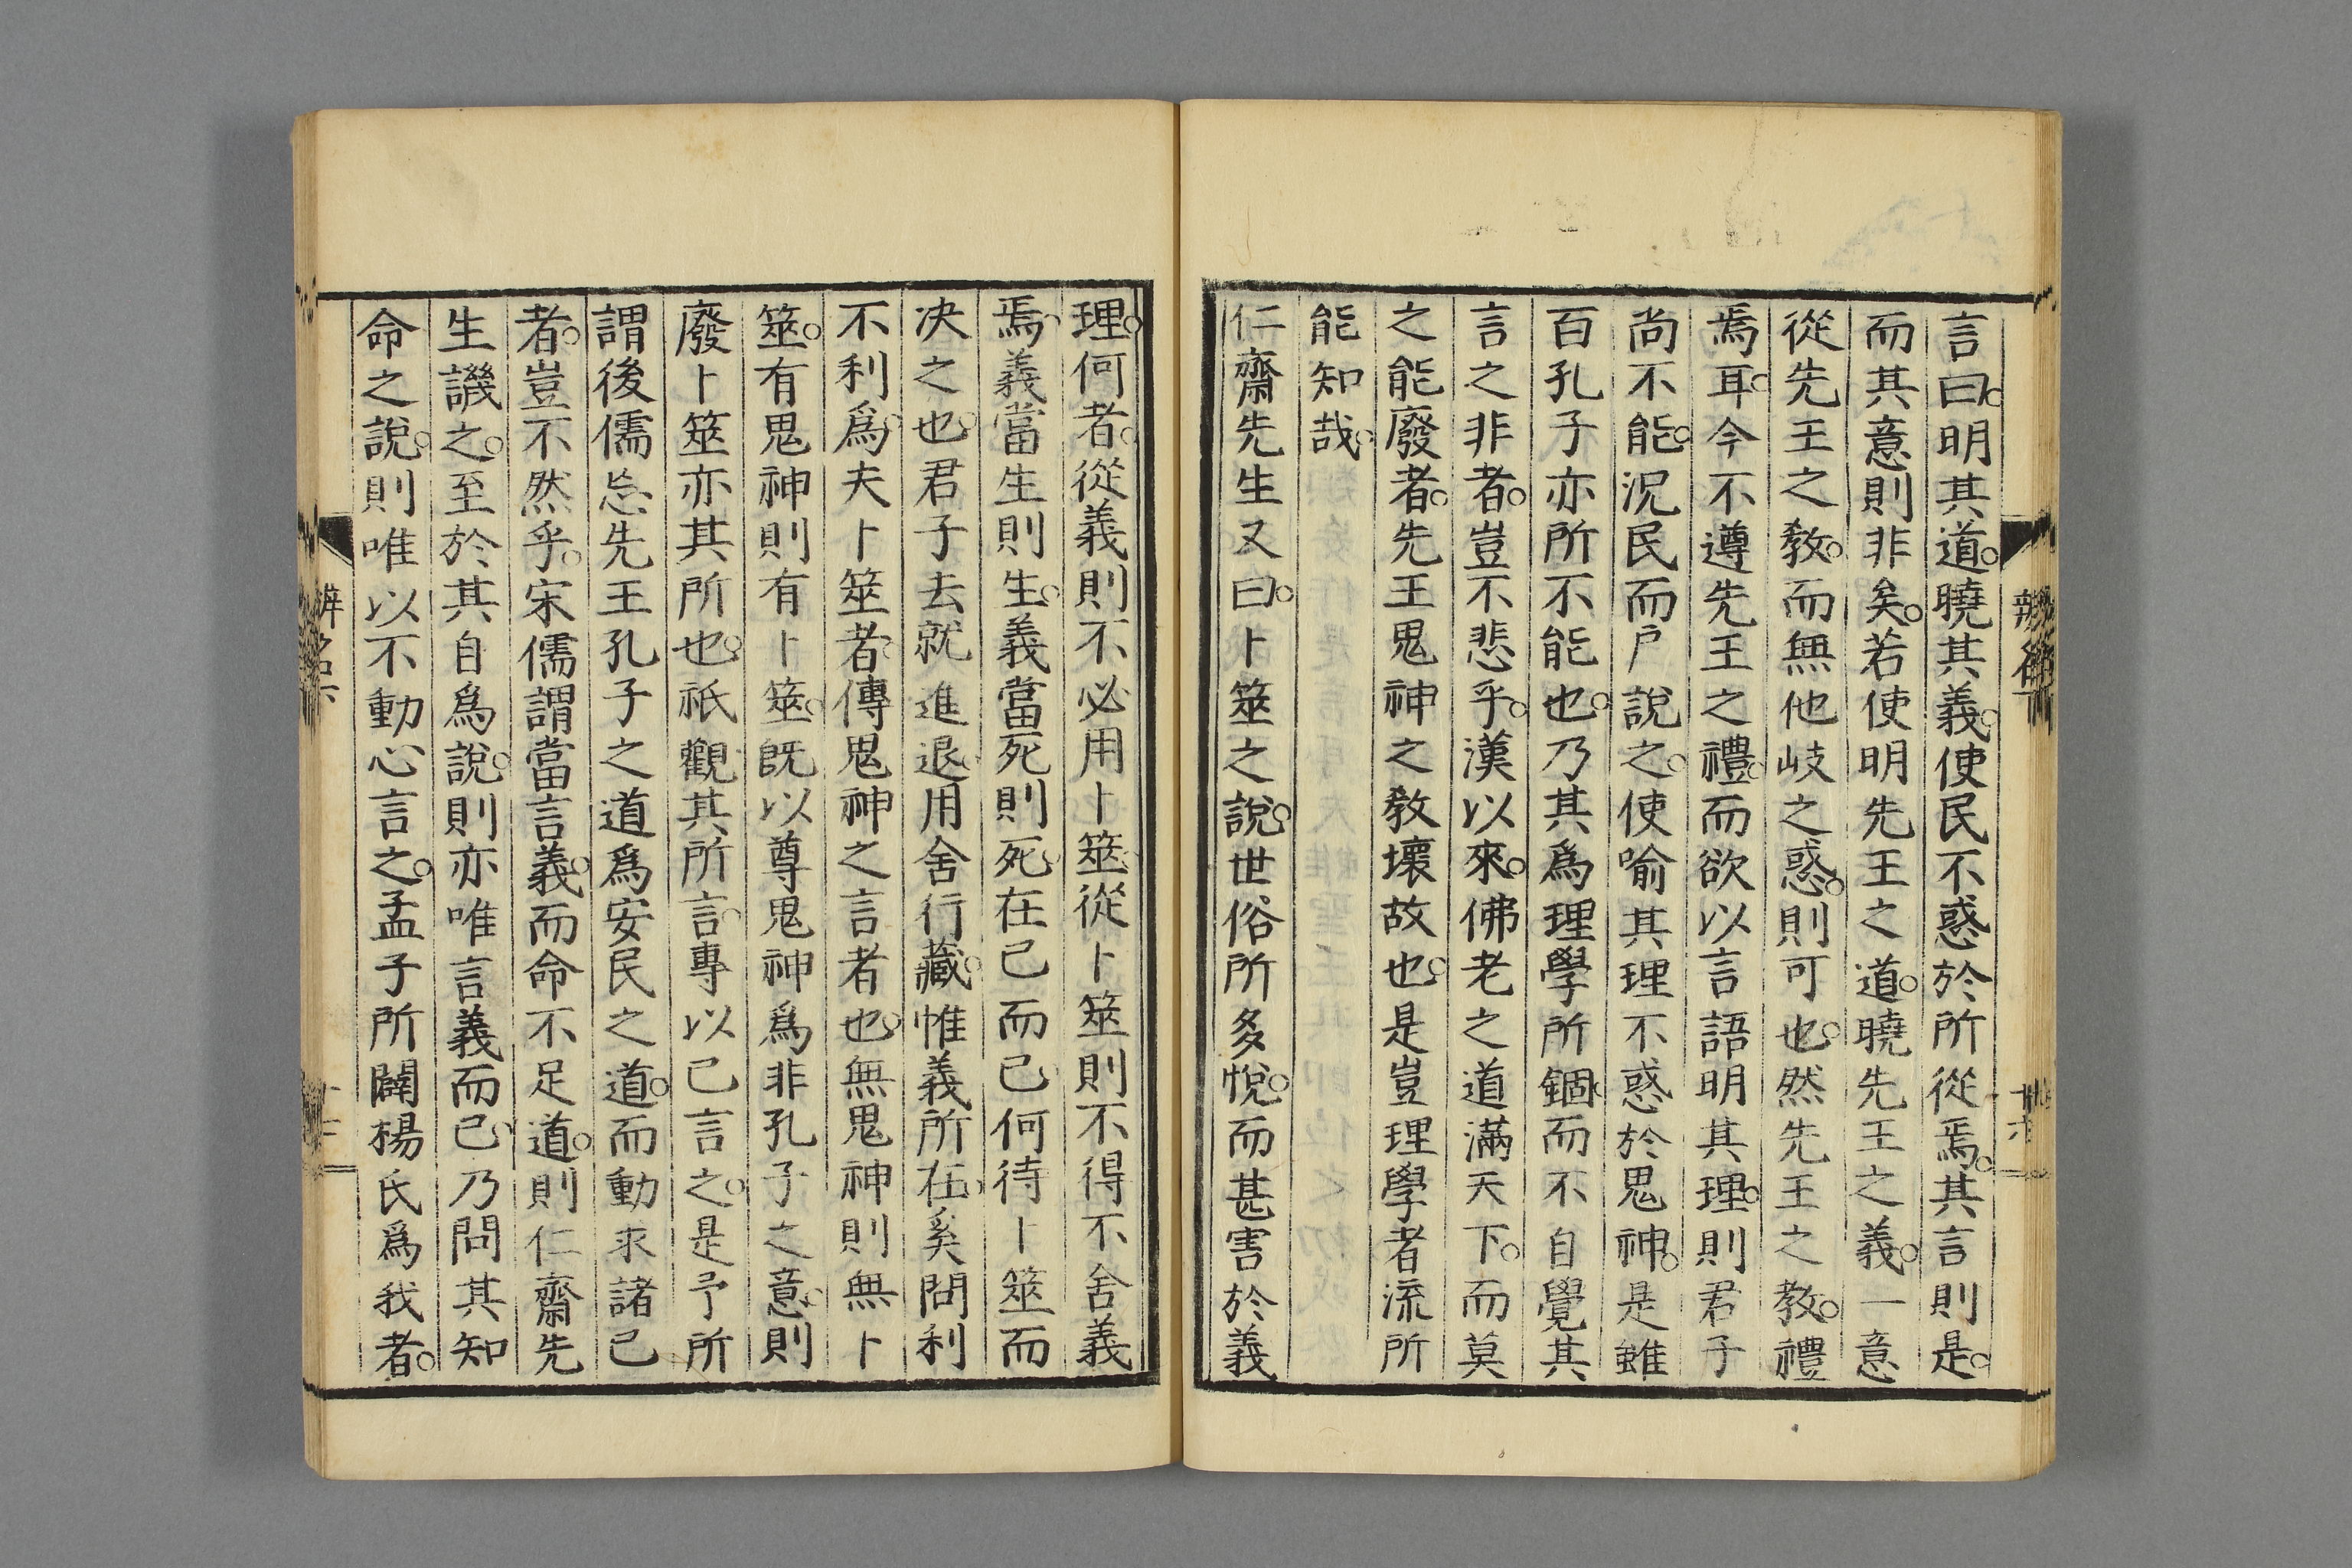 言曰。明其道。曉其義。使民不惑於所從焉。其言則是。
而其意則非矣。若使明先王之道。曉先王之義。一意
從先王之教。而無他岐之惑。則可也。然先王之教。禮
焉耳。今不遵先王之禮。而欲以言語明其理。則君子
尚不能。況民而戶說之。使喻其理不惑於鬼神。是雖
百孔子亦所不能也。乃其爲理學所錮。而不自覺其
言之非者。豈不悲乎。漢以來。佛老之道滿天下。而莫
之能廢者。先王鬼神之教壞故也。是豈理學者流所
能知哉。
仁齋先生又曰。卜筮之說。世俗所多悅。而甚害於義
理。何者。從義則不必用卜筮。從卜筮則不得不舍義
焉。義當生則生。義當死則死。在己而已。何待卜筮而
决之也。君子去就進退。用舍行藏。惟義所在。奚問利
不利爲。夫卜筮者。傳鬼神之言者也。無鬼神則無卜
筮。有鬼神則有卜筮。既以尊鬼神爲非孔子之意。則
廢卜筮亦其所也。祇觀其所言。專以己言之。是予所
謂後儒忘先王孔子之道爲安民之道。而動求諸己
者。豈不然乎。宋儒謂當言義。而命不足道。則仁齋先
生譏之。至於其自爲說。則亦唯言義而已。乃問其知
命之說。則唯以不動心言之。孟子所闢楊氏爲我者。
辨名下